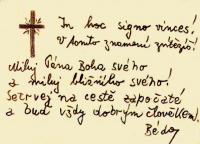 In hoc signo vinces!
V tomto znamení zvítězíš!
Miluj Pána Boha svého
a miluj bližního svého!
Setrvej na cestě započaté
a buď vždy dobrým člověkem!